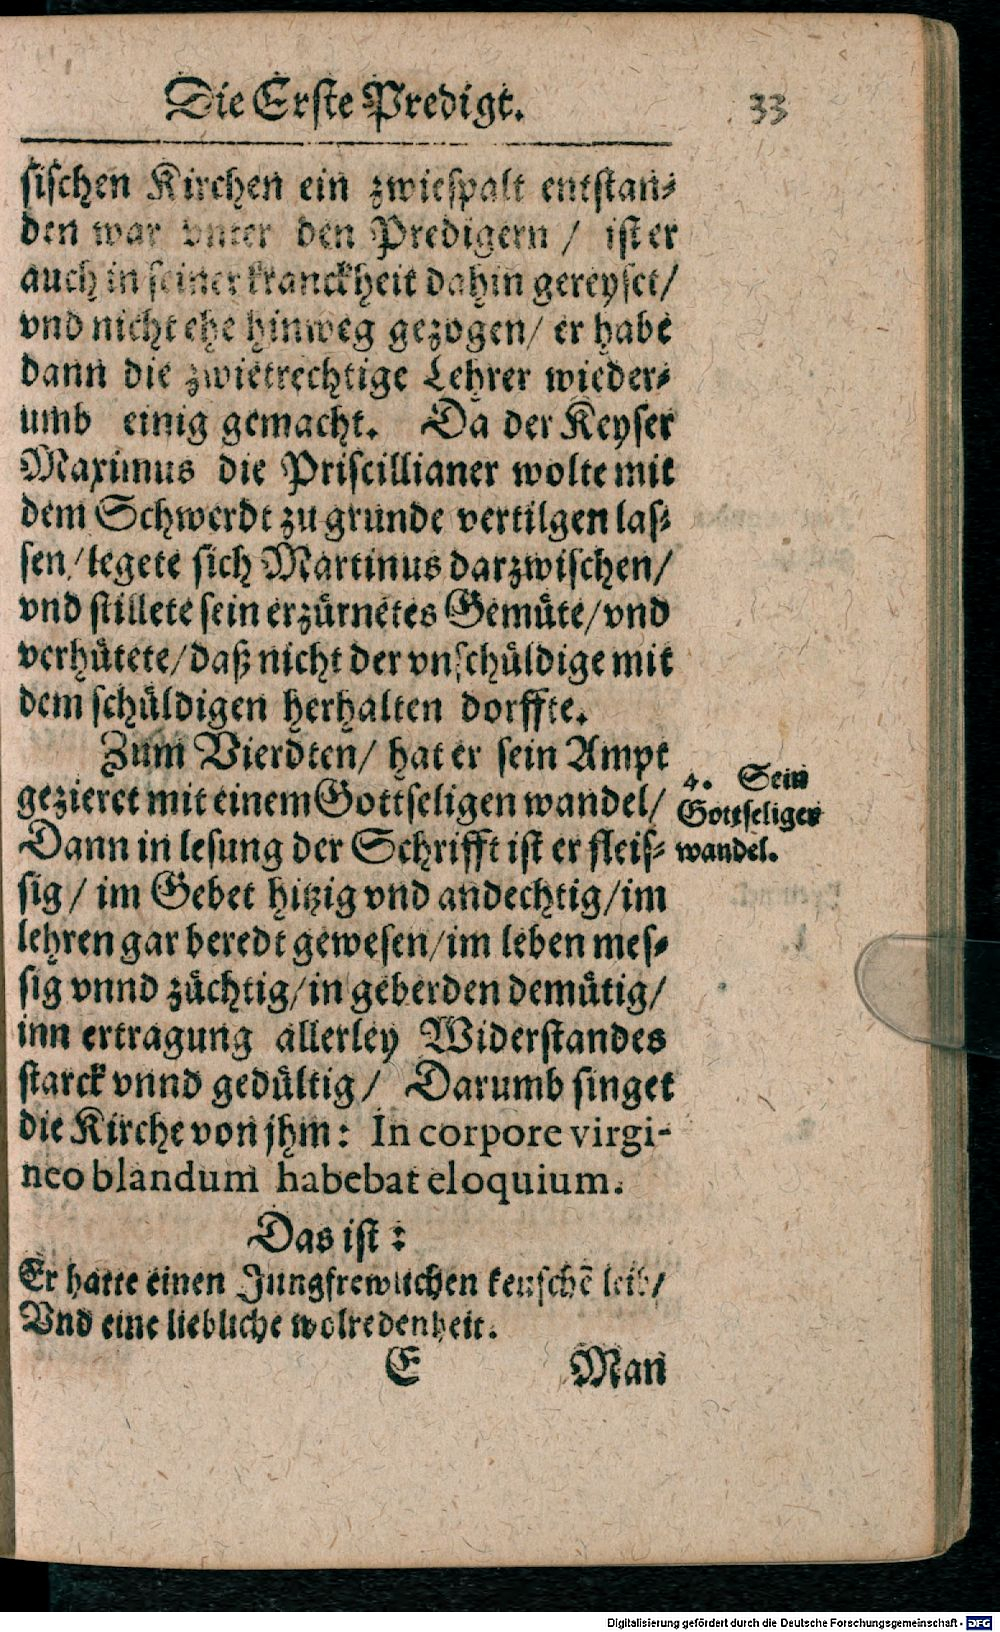 Die Erste Predigt. 33
sischen Kirchen ein zwiespalt entstan-
den war vnter den Predigern / ist er
auch in seiner kranckheit dahin gereyset/
vnd nicht ehe hinweg gezogen/ er habe
dann die zwietrechtige Lehrer wieder-
umb einig gemacht. Da der Keyser
Maximus die Priscillianer wolte mit
dem Schwerdt zu grunde vertilgen las-
sen/ legete sich Martinus darzwischen/
vnd stillete sein erzürnetes Gemüte/ vnd
verhütete/ daß nicht der vnschüldige mit
dem schüldigen herhalten dorffte.
Zum Vierdten/ hat er sein Ampt
gezieret mit einem Gottseligen wandel/
Dann in lesung der Schrifft ist er fleis-
sig/ im Gebet hitzig vnd andechtig/ im
lehren gar beredt gewesen/ im leben mes-
sig vnnd züchtig/ in geberden demütig/
inn ertragung allerley Widerstandes
starck vnnd gedültig/ Darumb singet
die Kirche von jhm: In corpore virgi-
neo blandum habebat eloquium.
Das ist:
Er hatte einen Jungfrewlichen keuschē leib/
Vnd eine liebliche wolredenheit.
E Man
4. Sein
Gottseliger
wandel.
Digitalisierung gefördert durch die Deutsche Forschungsgemeinschaft - DFG